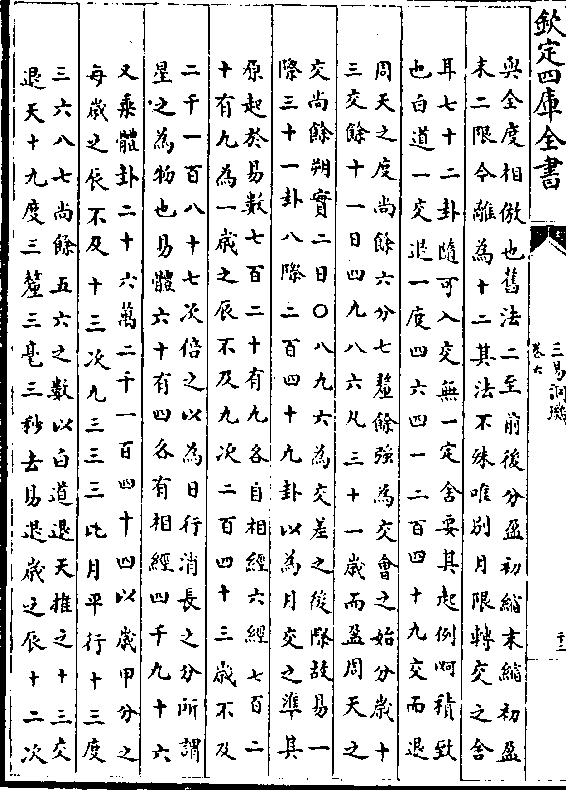 欽定四庫全書
三易洞璣
卷六
十三
與全度相倣也舊法二至前後分盈初縮末縮初盈
末二限今離為十二其法不殊唯別月限轉交之舍
耳七十二卦隨可入交無一定舍要其起例啊積致
也白道一交退一度四六四一二百四十九交而退
周天之度尚餘六分七釐餘強為交會之始分歲十
三交餘十一日四九八六凡三十一歲而盈周天之
交尚餘朔實二日〇八九六為交差之後際故易一
際三十一卦八際二百四十九卦以為月交之準其
原起於易數七百二十有九各自相經六經七百二
十有九為一歲之辰不及九次二百四十三歲不及
二千一百八十七次倍之以為日行消長之分所謂
星之為物也易體六十有四各有相經四千九十六
又乘體卦二十六萬二千一百四十四以歲甲分之
每歲之辰不及十三次九三三三比月平行十三度
三六八七尚餘五六之數以白道退天推之十三交
退天十九度三釐三毫三秒去易退歲之辰十二次